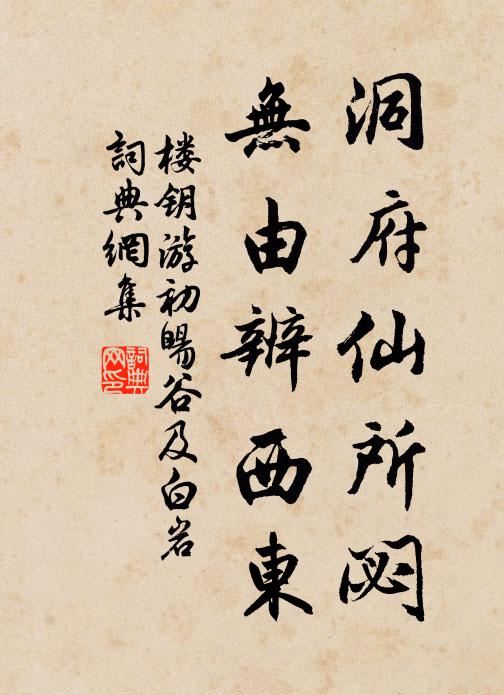 洞府仙所閟
無由辨西東
楼钥游初暘谷及白岩
詞典網集
詞典网印